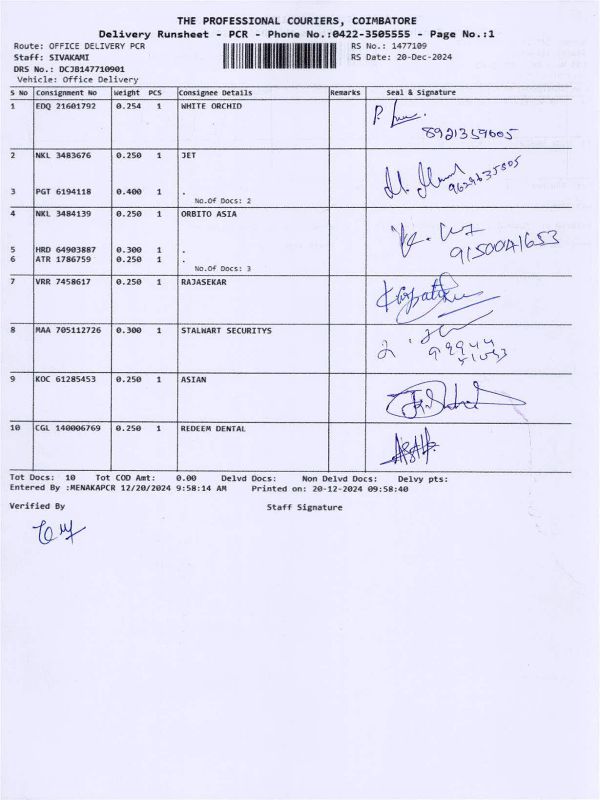 THE PROFESSIONAL COURIERS, COIMBATORE
Delivery Runsheet - PCR - Phone No.:0422-3505555 - Page No.:1
Route: OFFICE DELIVERY PCR RS No.: 1477109
Staff: SIVAKAMI RS Date: 20-Dec-2024
DRS No.: DCJB147710901
Vehicle: Office Delivery
S No Consignment No Weight PCS Consignee Details Remarks Seal & Signature
1 EDQ 21601792 0.254 1 WHITE ORCHID
8921359605
2 NKL 3483676 0.250 1 JET
9629635805
3 PGT 6194118 0.400 1 .
No.Of Docs: 2
4 NKL 3484139 0.250 1 ORBITO ASIA
9150041653
5 HRD 64903887 0.300 1 .
6 ATR 1786759 0.250 1 .
No.Of Docs: 3
7 VRR 7458617 0.250 1 RAJASEKAR
8 MAA 705112726 0.300 1 STALWART SECURITYS
9 KOC 61285453 0.250 1 ASIAN
10 CGL 140006769 0.250 1 REDEEM DENTAL
Tot Docs: 10 Tot COD Amt: 0.00 Delvd Docs: Non Delvd Docs: Delvy pts:
Entered By :MENAKAPCR 12/20/2024 9:58:14 AM Printed on: 20-12-2024 09:58:40
Verified By Staff Signature